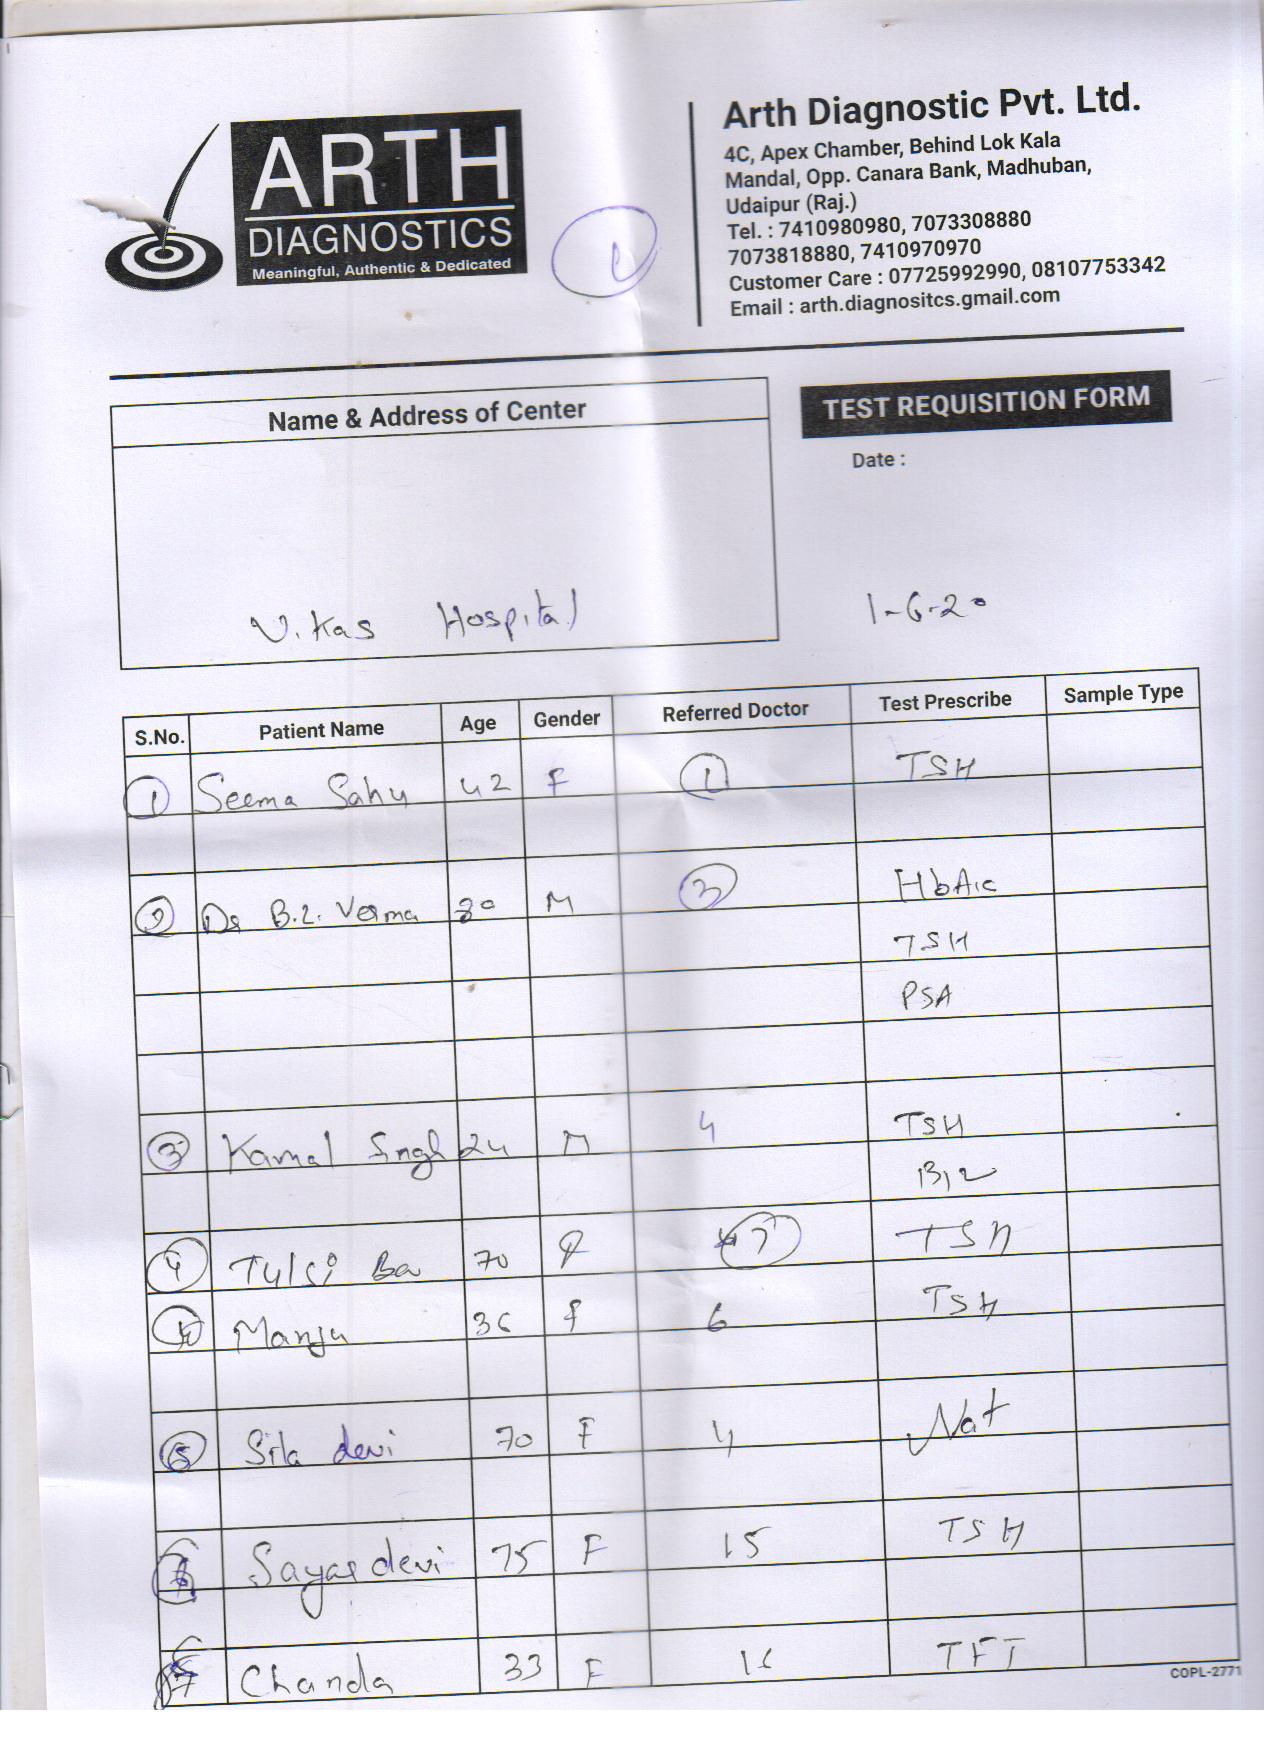 ARTH
DIAGNOSTICS
Meaningful, Authentic & Dedicated
1
Arth Diagnostic Pvt. Ltd.
4C, Apex Chamber, Behind Lok Kala
Mandal, Opp. Canara Bank, Madhuban,
Udaipur (Raj.)
Tel. : 7410980980, 7073308880
7073818880, 7410970970
Customer Care : 07725992990, 08107753342
Email : arth.diagnositcs.gmail.com
Name & Address of Center
Vikas Hospital
TEST REQUISITION FORM
Date :
1-6-20
S.No. Patient Name Age Gender Referred Doctor Test Prescribe Sample Type
1 Seema Sahu 42 F 1 TSH
2 Dr B.L. Verma 80 M 3 HbA1c
TSH
PSA
3 Kamal Singh 24 M 4 TSH
B12
4 Tulsi Bai 70 F 7 TSH
5 Manju 36 F 6 TSH
6 Sita devi 70 F 4 Nat
Sayar devi 75 F 15 TSH
Chanda 33 F 16 TFT
COPL-2771